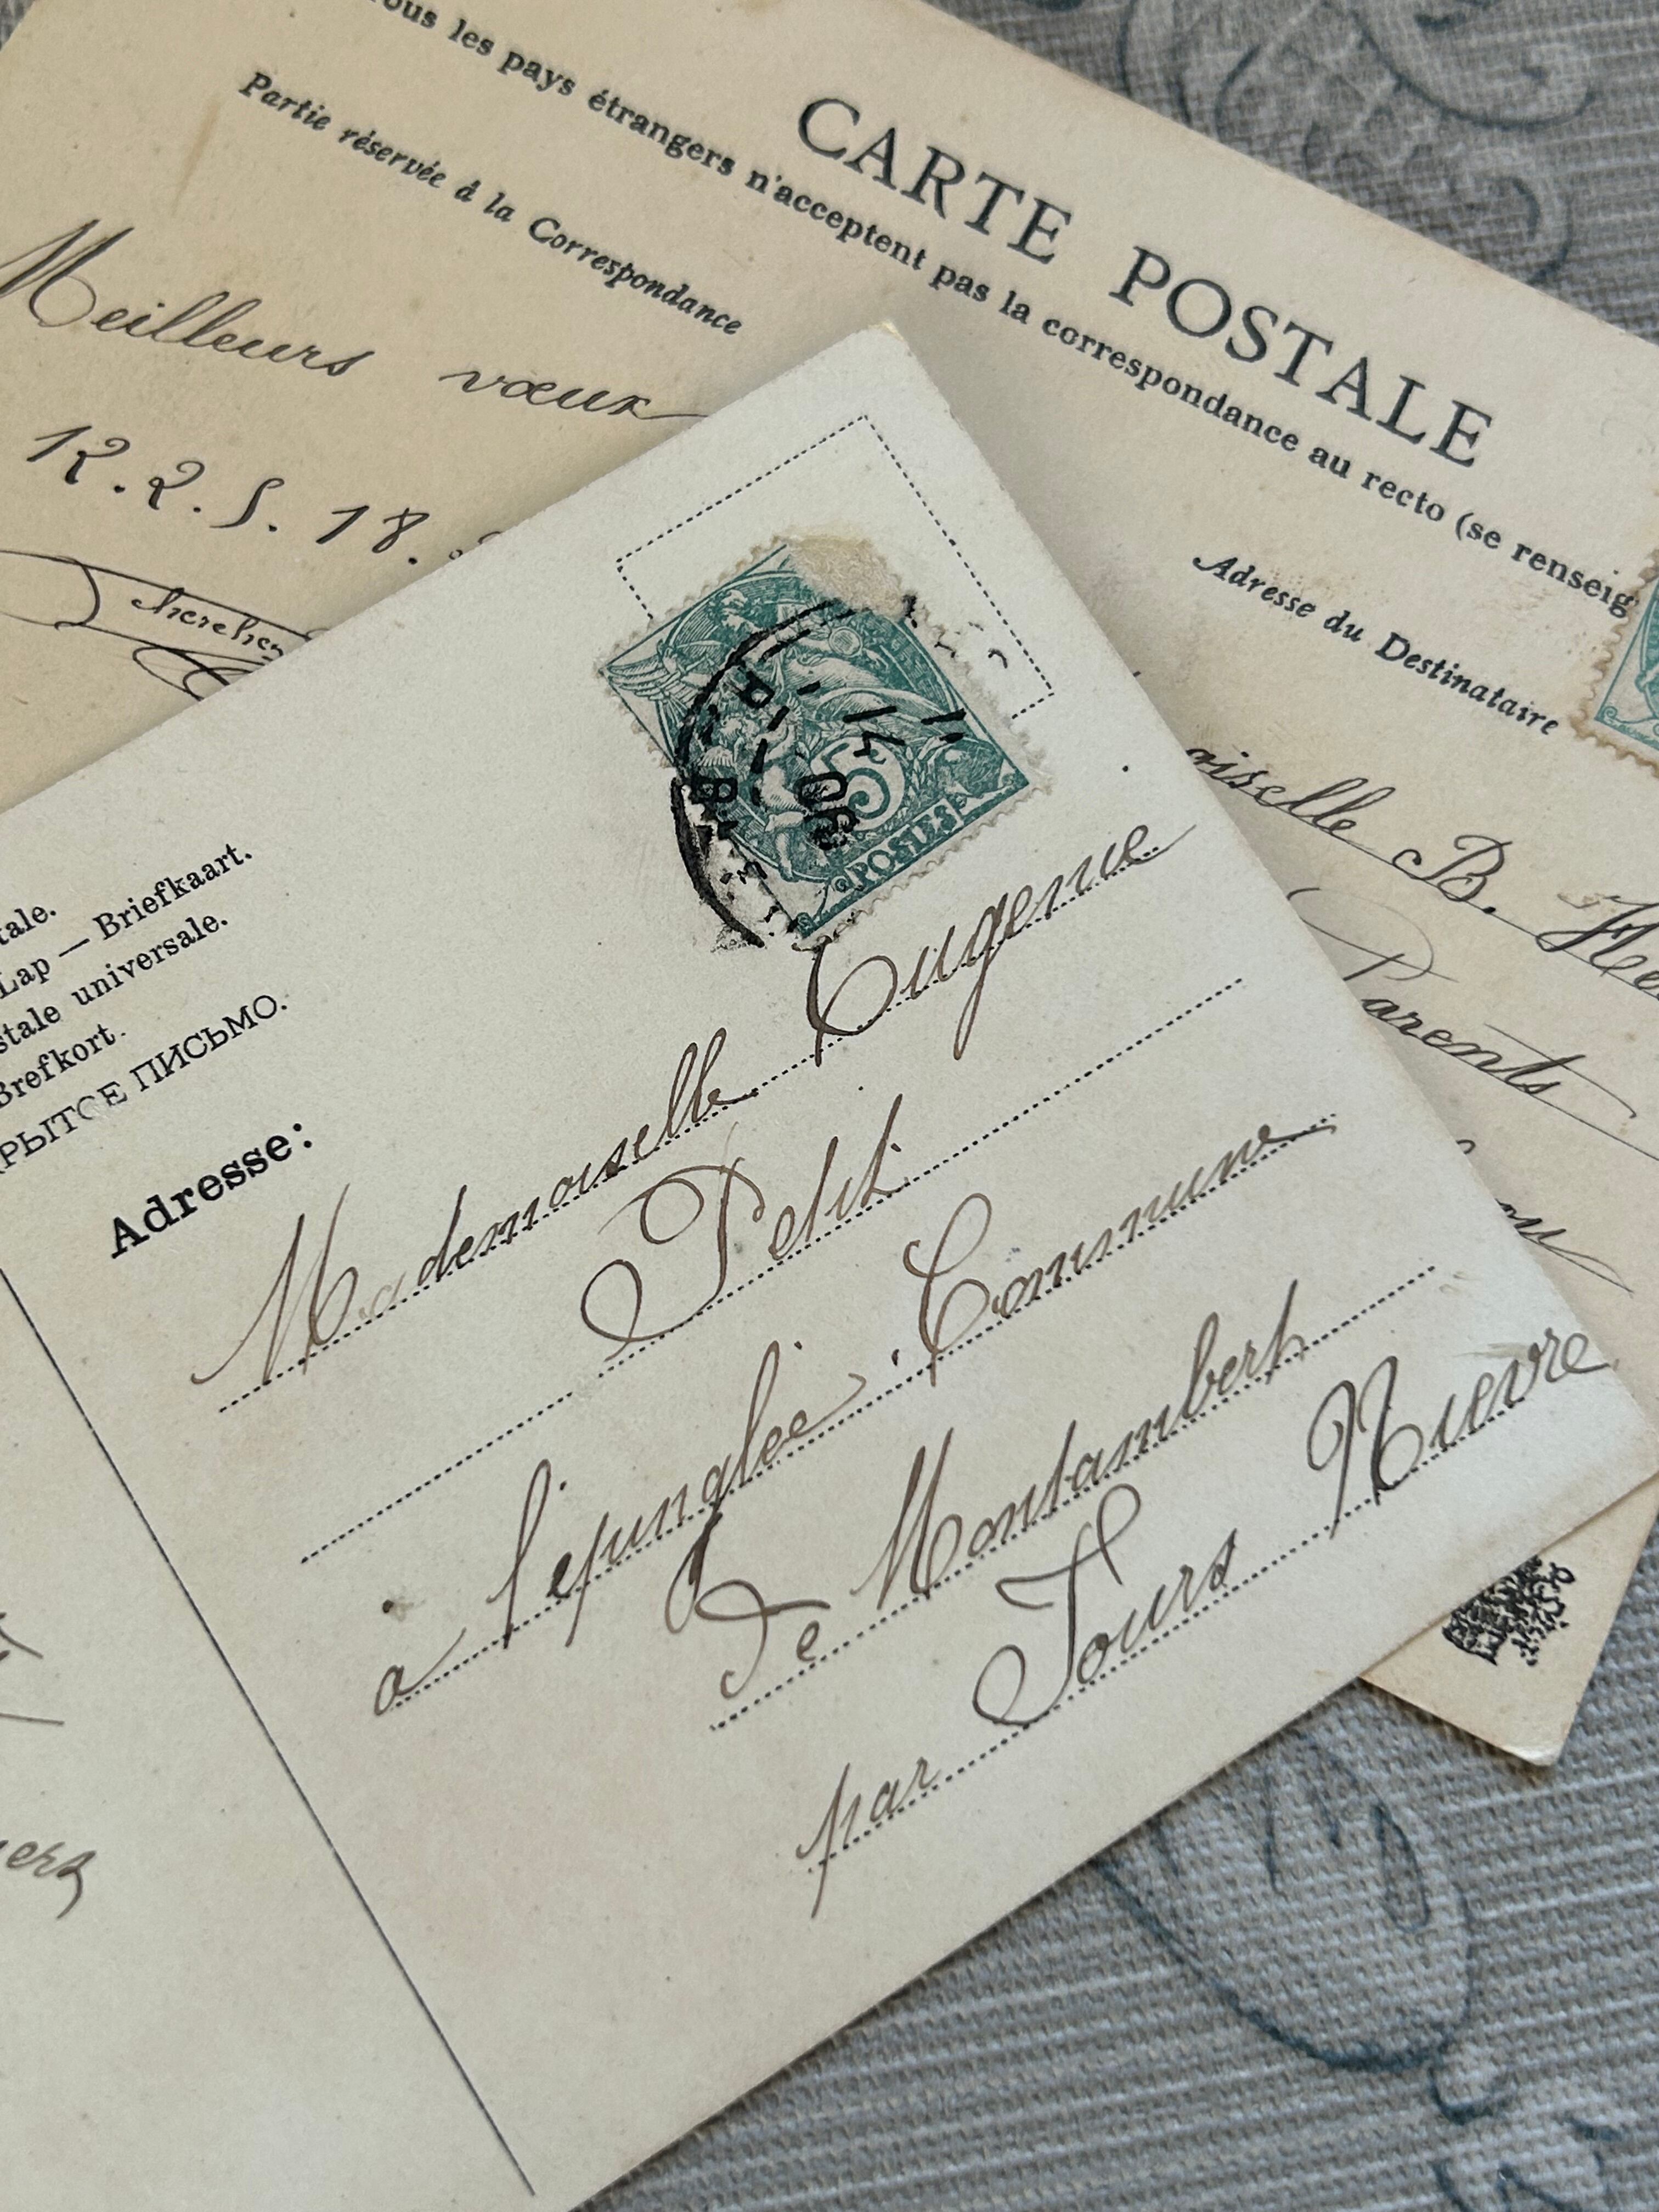 ous les pays étrangers n'acceptent pas la correspondance au recto (se renseig
CARTE POSTALE
Partie réservée à la Correspondance
Adresse du Destinataire
Meilleurs vœux
12.2.5.18.
B.
Parents
5
POSTES
14
tale.
Lap — Briefkaart.
stale universale.
Brefkort.
РЫТОЕ ПИСЬМО.
Adresse:
Mademoiselle Eugenie
Petit
a l'epinglée. Commune
De Montambert
par Tours Nievre